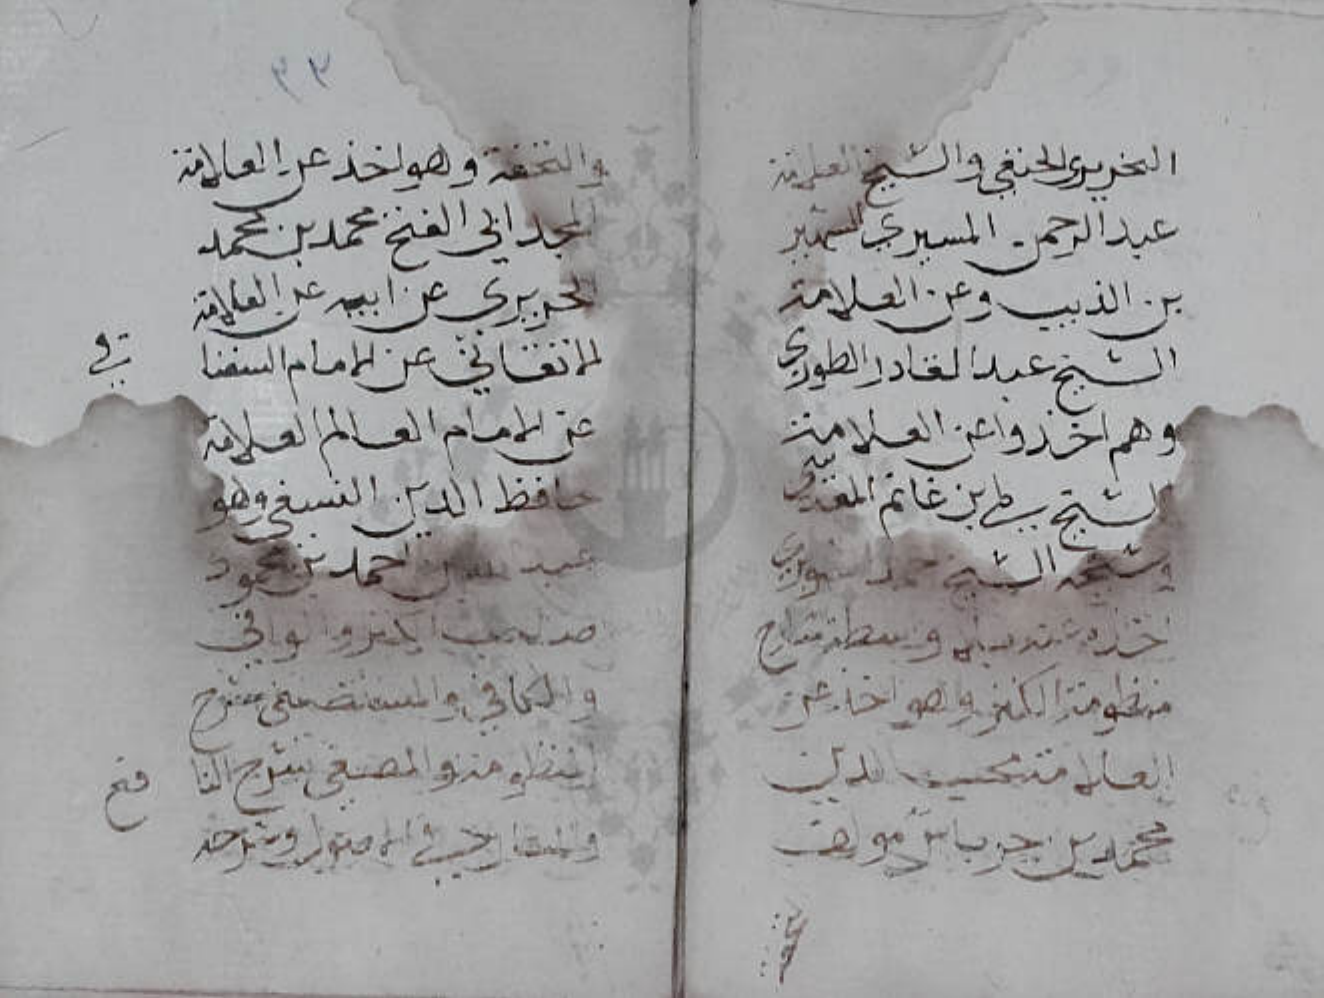 النحريري الحنفي والشيخ العلامة
عبد الرحمن المسيري الشهير
بن الذيب وعن العلامة
الشيخ عبد القادر الطوري
وهم اخذوا عن العلامة
الشيخ علي بن غانم المقدسي
وشيخه الشيخ
اخذه
منظومة الكنز وهو اخذ عن
العلامة محب الدين
محمد بن جرباش مولف
٣٣
والتحفة وهو اخذ عن العلامة
المجد ابي الفتح محمد بن محمد
الحريري عن ابيه عن العلامة
الاتقاني عن الامام السغنا
قي
عن الامام العالم العلامة
حافظ الدين النسفي وهو
عبد الله بن احمد بن محمود
صاحب الكنز والوافي
والكافي والمستصفى شرح
المنظومة والمصفى شرح النا
فع
والمنار في الاصول وشرحه